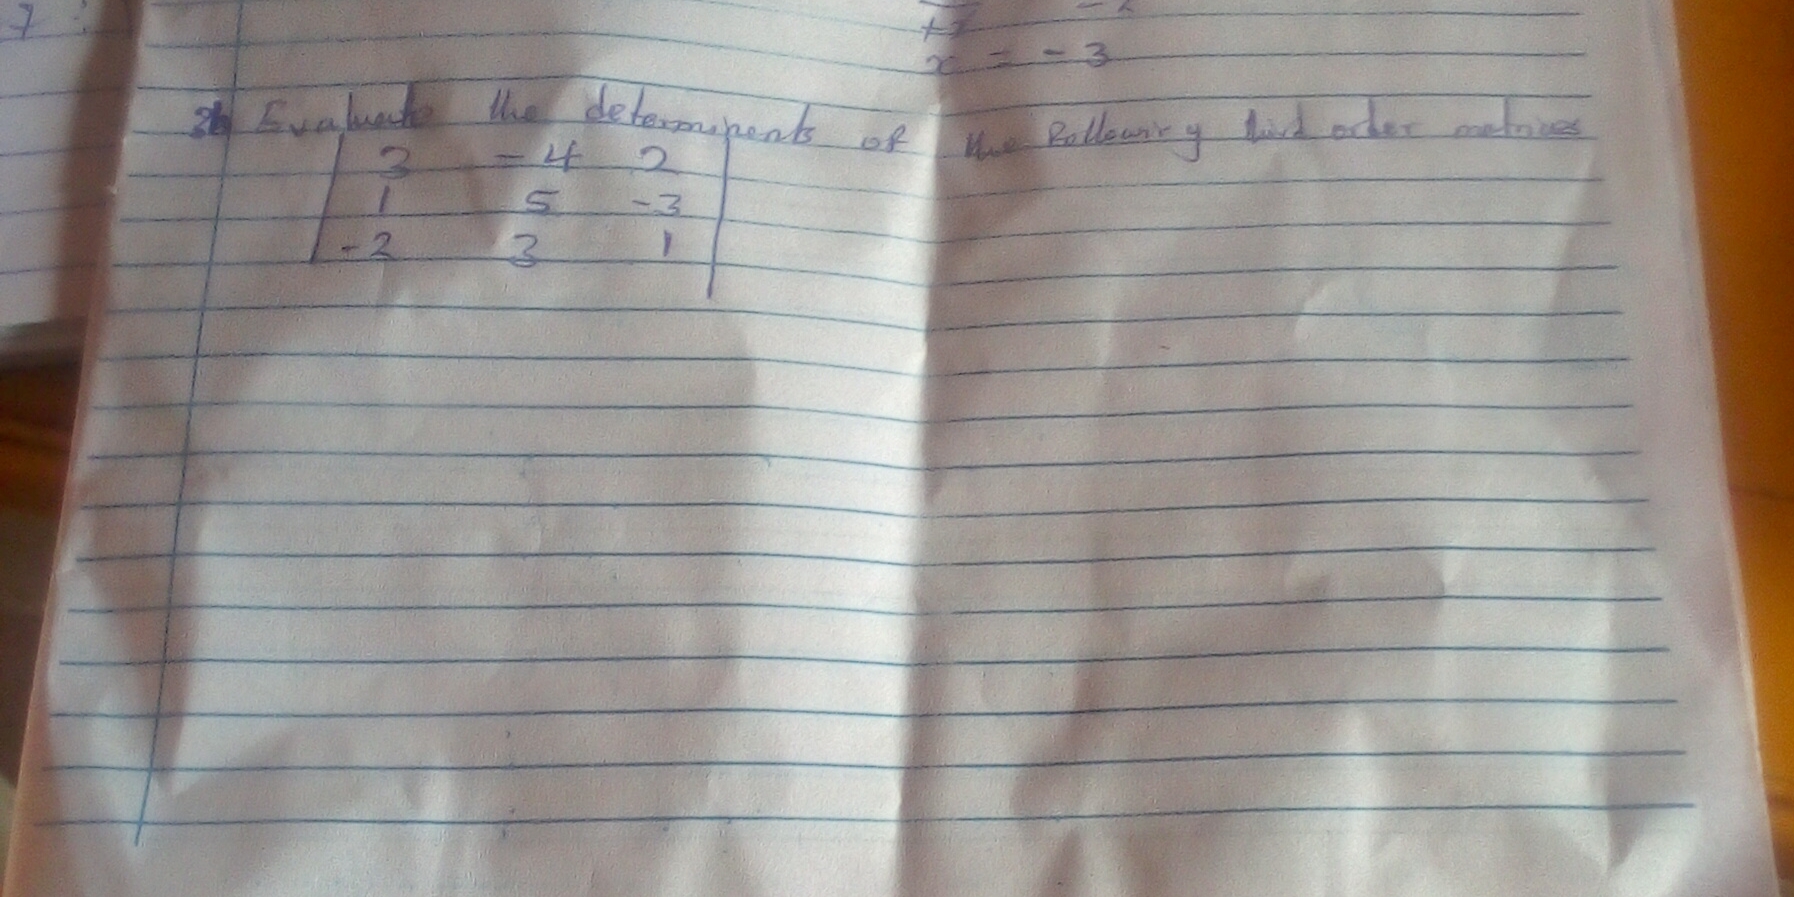 7
+7 -2
x = -3
3b Evaluate the determinents of the following third order matrices
3 -4 2
1 5 -3
-2 3 1